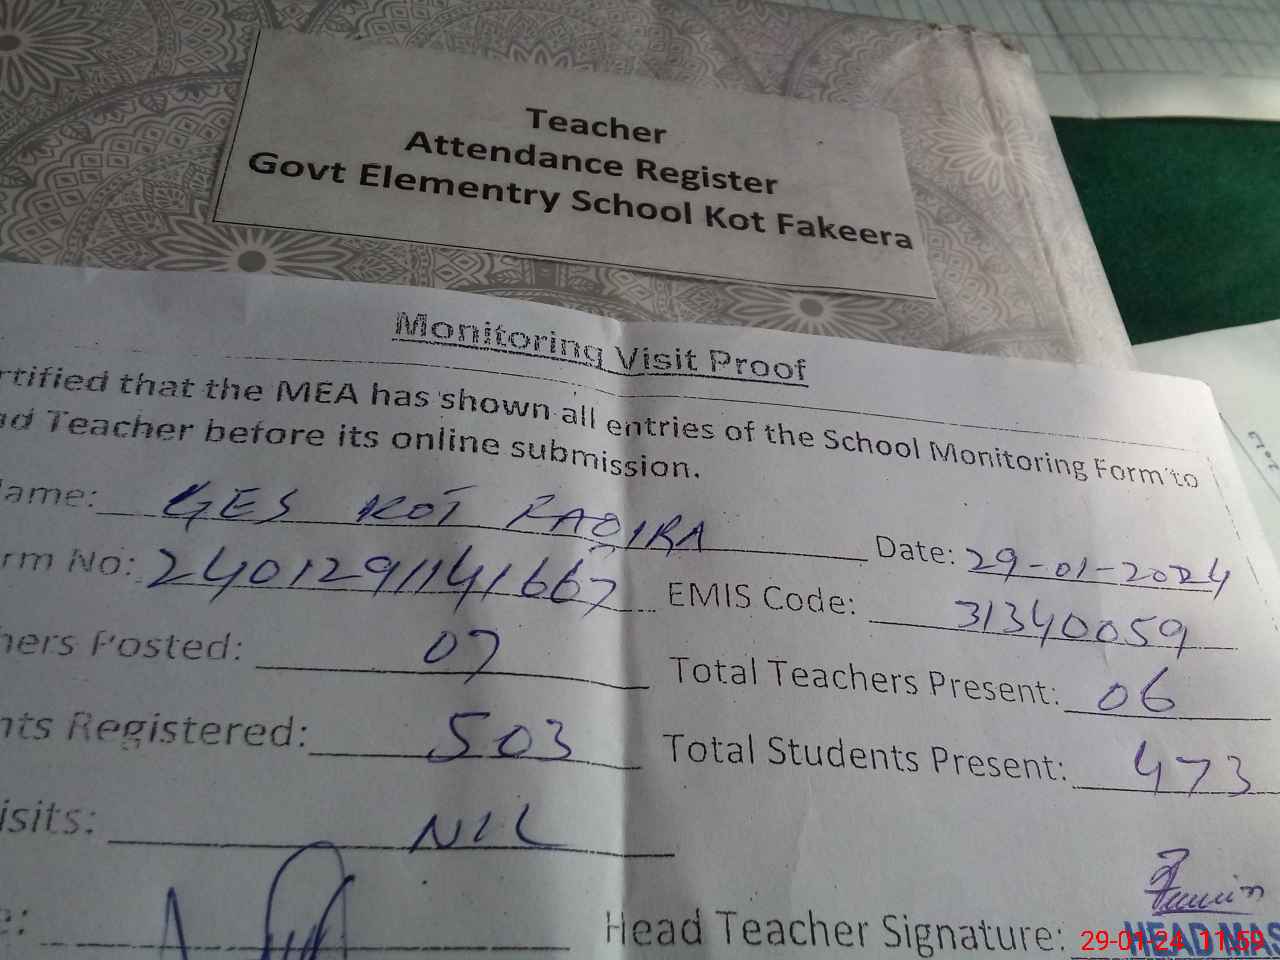 Teacher
Attendance Register
Govt Elementry School Kot Fakeera
Monitoring Visit Proof
rtified that the MEA has shown all entries of the School Monitoring Form to
ad Teacher before its online submission.
ame: GES KOT FAQIRA Date: 29-01-2024
rm No: 2401291141667 EMIS Code: 31340059
hers Posted: 07 Total Teachers Present: 06
nts Registered: 503 Total Students Present: 473
isits: NIL
e: Head Teacher Signature:
HEAD MAS
29-01-24 11:59